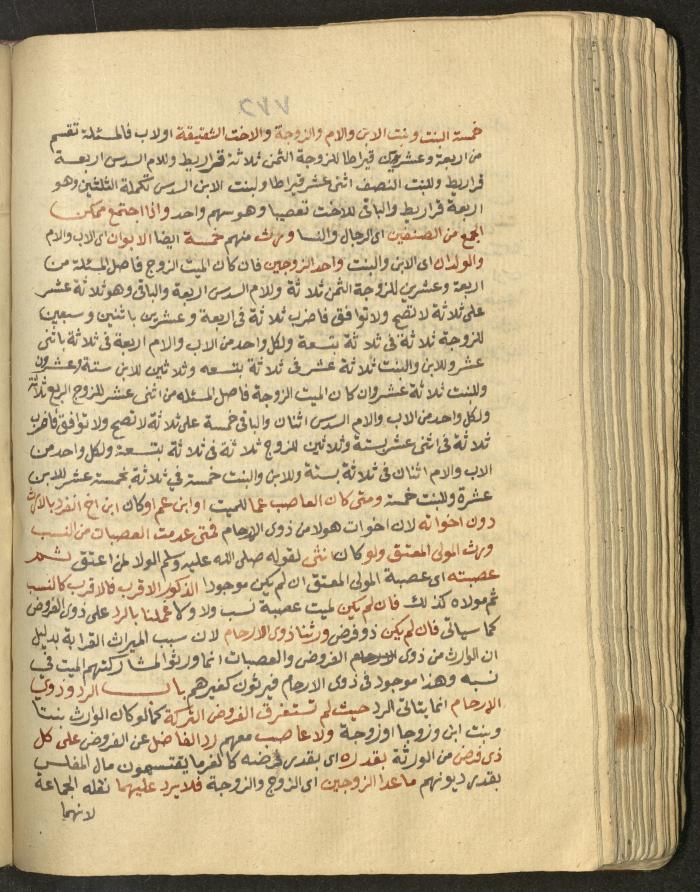 ٧٨٦
خمسة البنت وبنت الابن والام والزوجة والاخت الشقيقة او لاب فالمسئلة تقسم
من اربعة وعشرين قيراطا للزوجة الثمن ثلاثة قراريط وللام السدس اربعة
قراريط وللبنت النصف اثنى عشر قيراطا ولبنت الابن السدس تكملة الثلثين وهو
اربعة قراريط والباقى للاخت تعصيبا وهو سهم واحد واذا اجتمع ممكن
الجمع من الصنفين اى الرجال والنسا ورث منهم خمسة ايضا الابوان اى الاب والام
والولدان اى الابن والبنت واحد الزوجين فان كان الميت الزوج فاصل المسئلة من
اربعة وعشرين للزوجة الثمن ثلاثة وللام السدس اربعة والباقى وهو ثلاثة عشر
على ثلاثة لا تصح ولا توافق فاضرب ثلاثة فى اربعة وعشرين باثنين وسبعين
للزوجة ثلاثة فى ثلاثة بتسعة ولكل واحد من الاب والام اربعة فى ثلاثة باثنى
عشر وللابن والبنت ثلاثة عشر فى ثلاثة بتسعه وثلاثين للابن ستة وعشرون
وللبنت ثلاثة عشر وان كان الميت الزوجة فاصل المسئله من اثنى عشر للزوج الربع ثلاثة
ولكل واحد من الاب والام السدس اثنان والباقى خمسة على ثلاثة لا تصح ولا توافق فاضرب
ثلاثة فى اثنى عشر بستة وثلاثين للزوج ثلاثة فى ثلاثة بتسعة ولكل واحد من
الاب والام اثنان فى ثلاثة بستة وللابن والبنت خمسة فى ثلاثة بخمسة عشر للابن
عشرة وللبنت خمسة ومتى كان العاصب عما للميت او ابن عم او كان ابن اخ انفرد بالارث
دون اخواته لان اخوات هولا من ذوى الارحام فمتى عدمت العصبات من النسب
ورث المولى المعتق ولو كان انثى لقوله صلى الله عليه وسلم الولا لمن اعتق ثم
عصبته اى عصبة المولى المعتق ان لم يكن موجودا الذكور الاقرب فالاقرب كالنسب
ثم مولاه كذلك فان لم يكن لميت عصبة نسب ولا ولا عملنا بالرد على ذوى الفروض
كما سياتى فان لم يكن ذو فرض ورثنا ذوى الارحام لان سبب الميراث القرابة بدليل
ان الوارث من ذوى الارحام الفروض والعصبات انما ورثوا لمشاركتهم الميت فى
نسبه وهذا موجود فى ذوى الارحام فيرثون كغيرهم باب الرد وذوي
الارحام انما يتاتى الرد حيث لم تستغرق الفروض التركة كما لو كان الوارث بنتا
وبنت ابن وزوجا او زوجة ولا عاصب معهم رد الفاضل عن الفروض على كل
ذى فرض من الورثة بقدره اى بقدر فرضه كالغرما يقتسمون مال المفلس
بقدر ديونهم ما عدا الزوجين اى الزوج والزوجة فلا يرد عليهما نقله الجماعة
لانهما